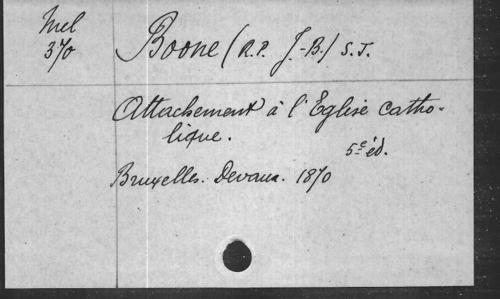 Mel
370
Boone (R.P. J.-B.) S.J.
Attachement à l'Eglise catho-
lique.
5e éd.
Bruxelles. Devaux. 1870